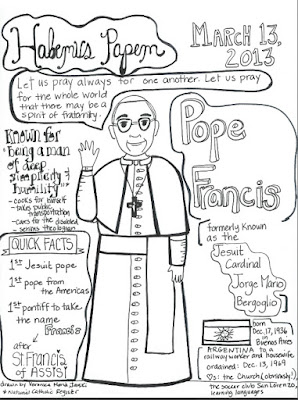 Habemus Papem
MARCH 13,
2013
Let us pray always for one another. Let us pray
for the whole world
that there may be a
spirit of fraternity.
Known for
"being a man of
deep
simplicity &
humility"
- cooks for himself
- takes public
transportation
- cares for the disabled
- serious theologian
Pope
Francis
formerly known
as the
Jesuit
Cardinal
Jorge Mario
Bergoglio
QUICK FACTS
1st Jesuit pope
1st pope from
the Americas
1st pontiff to take
the name
Francis
after
St. Francis
of Assisi
born
Dec. 17, 1936
in
Buenos Aires
ARGENTINA to a
railway worker and housewife
ordained: Dec. 13, 1969
♡s: the Church (obviously!),
the soccer club San Lorenzo,
learning languages
drawn by Veronica Maria
National Catholic Register